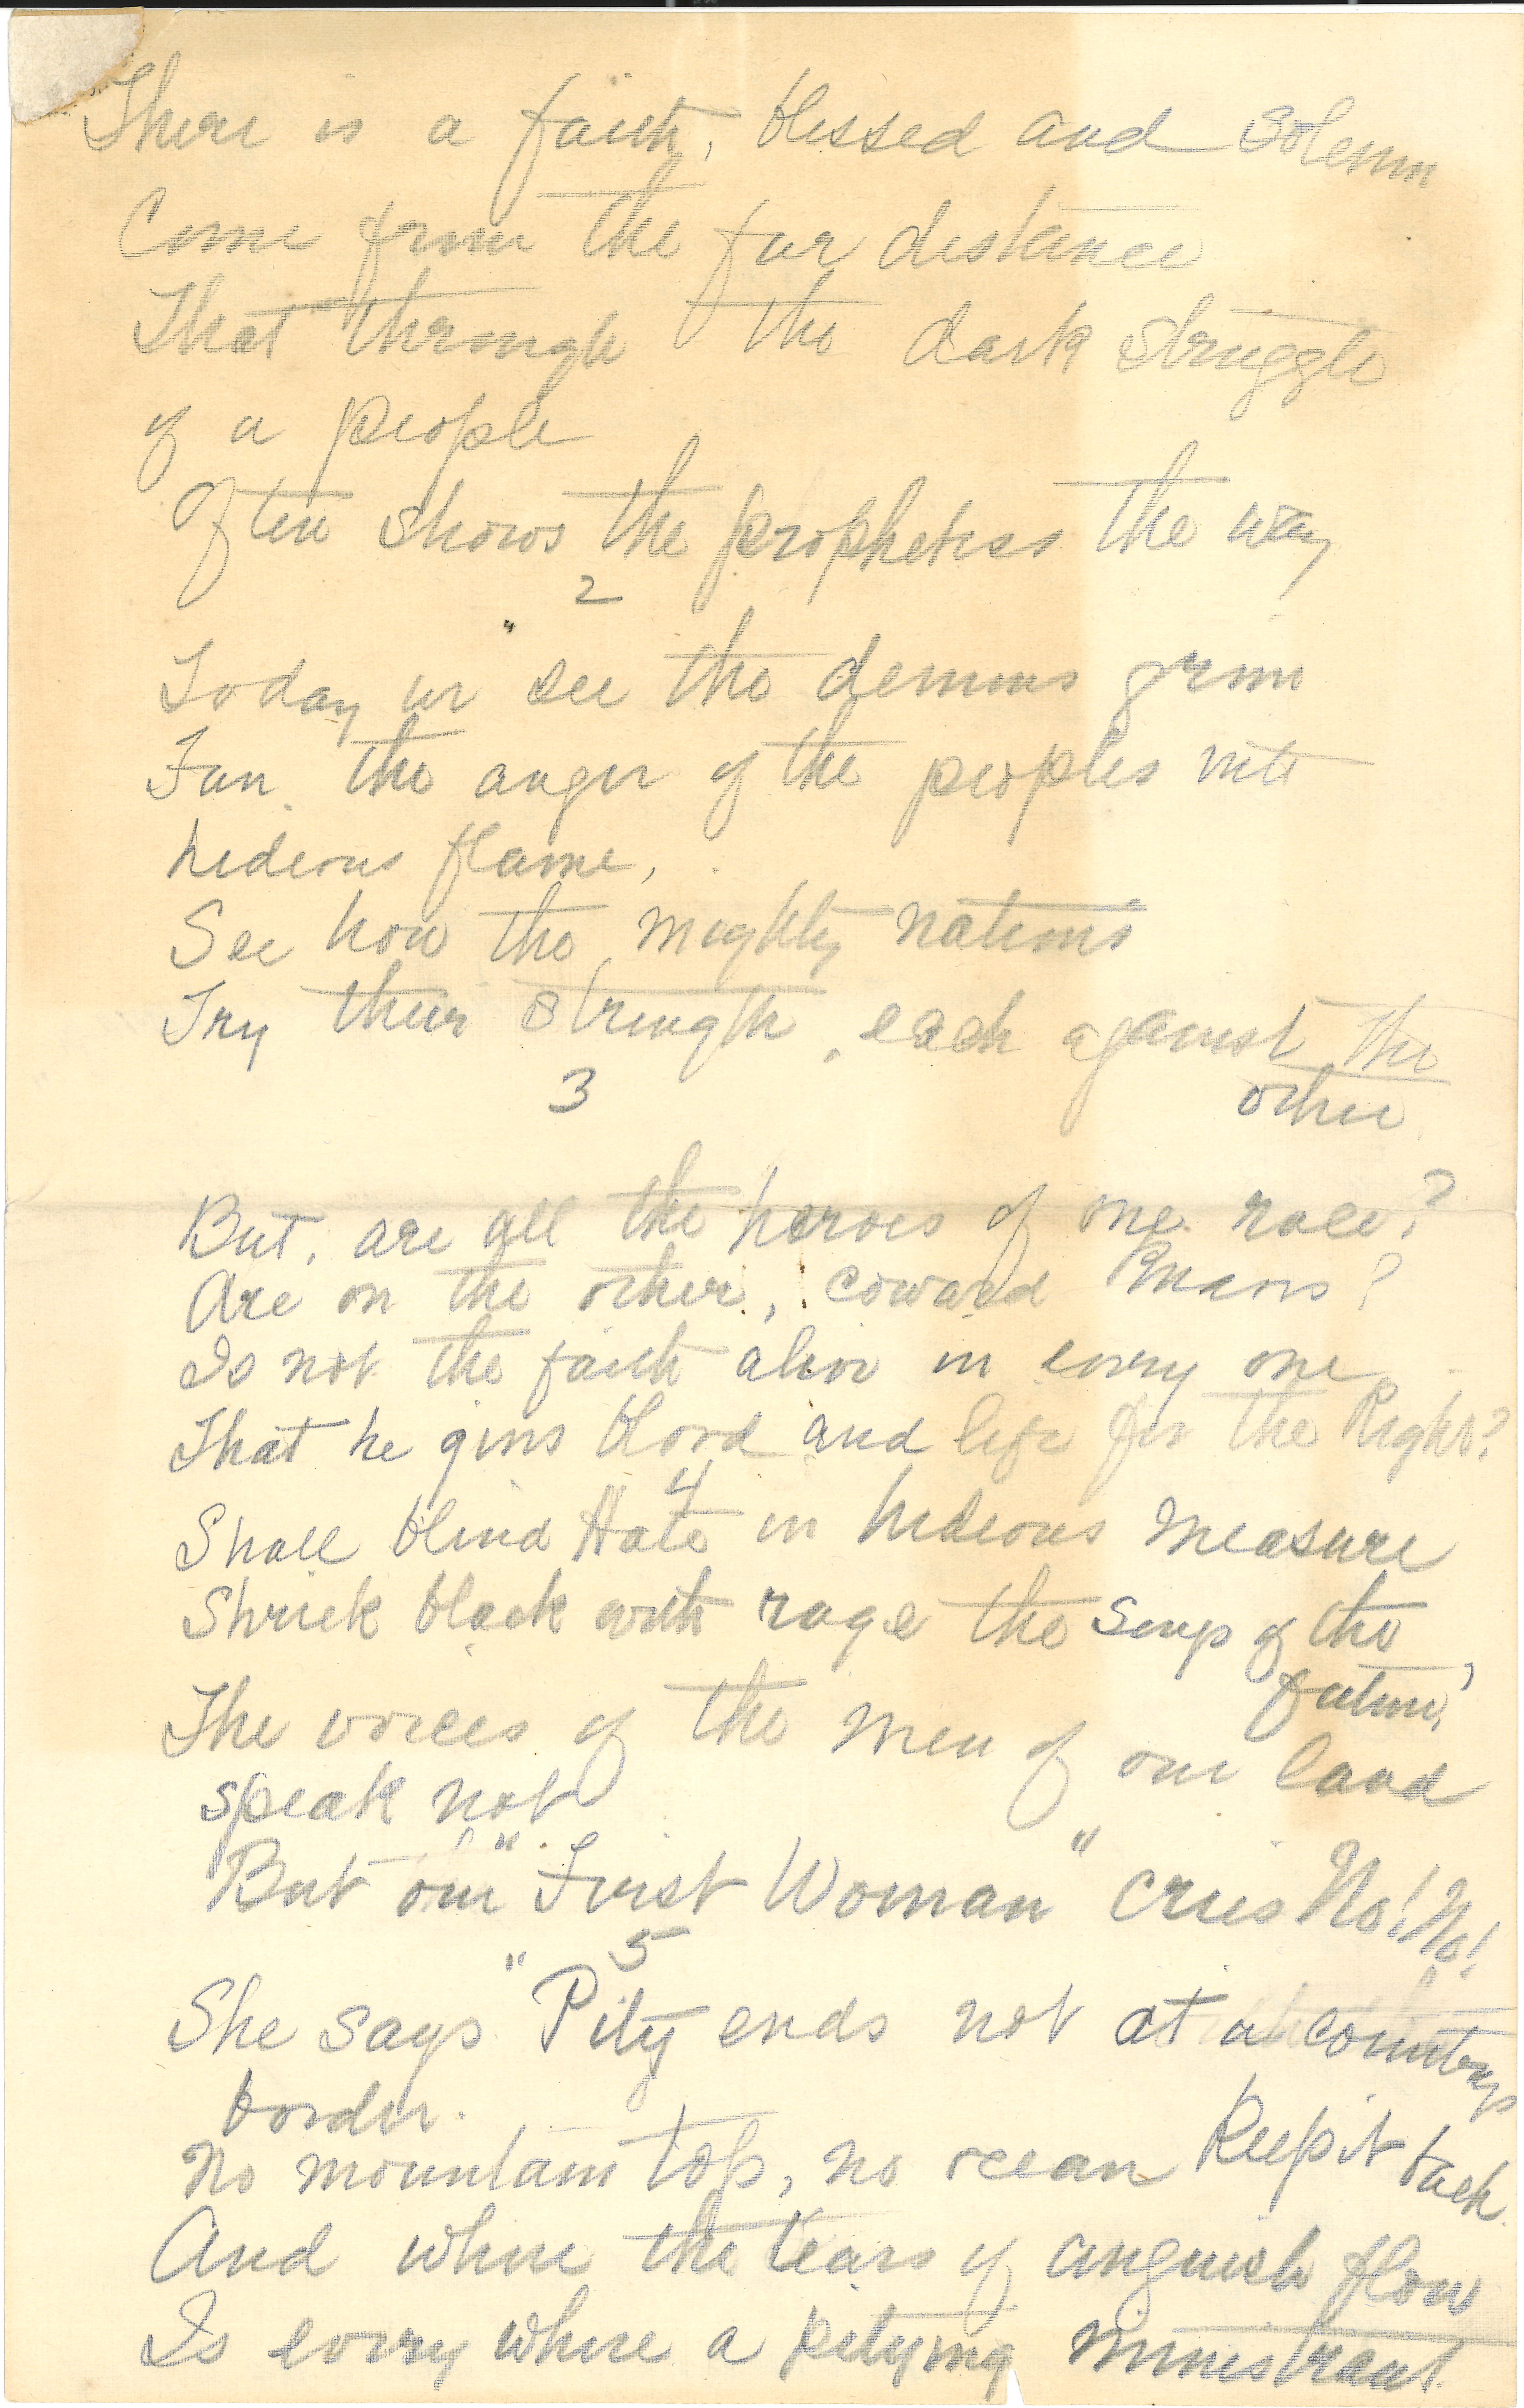 There is a faith, blessed and solemn
Come from the far distance
That through the dark struggle
of a people
Often shows the prophetess the way
2
Today we see the demons grim
Fan the anger of the peoples into
hideous flame,
See how the mighty nations
Try their strength, each against the
other
3
But, are all the heroes of one race?
Are on the other, coward
Is not the faith alive in every one
That he gives blood and life for the Right?
4
Shall blind Hate in hideous measure
Shriek black with rage the songs of the
future,
The voices of the men of our land
speak not
But our "First Woman" cries No! No!
5
She says "Pity ends not at a countrys
border.
No mountain top, no ocean Keeps it back.
And where the tears of anguish flow
Is every where a pitying ministrant.